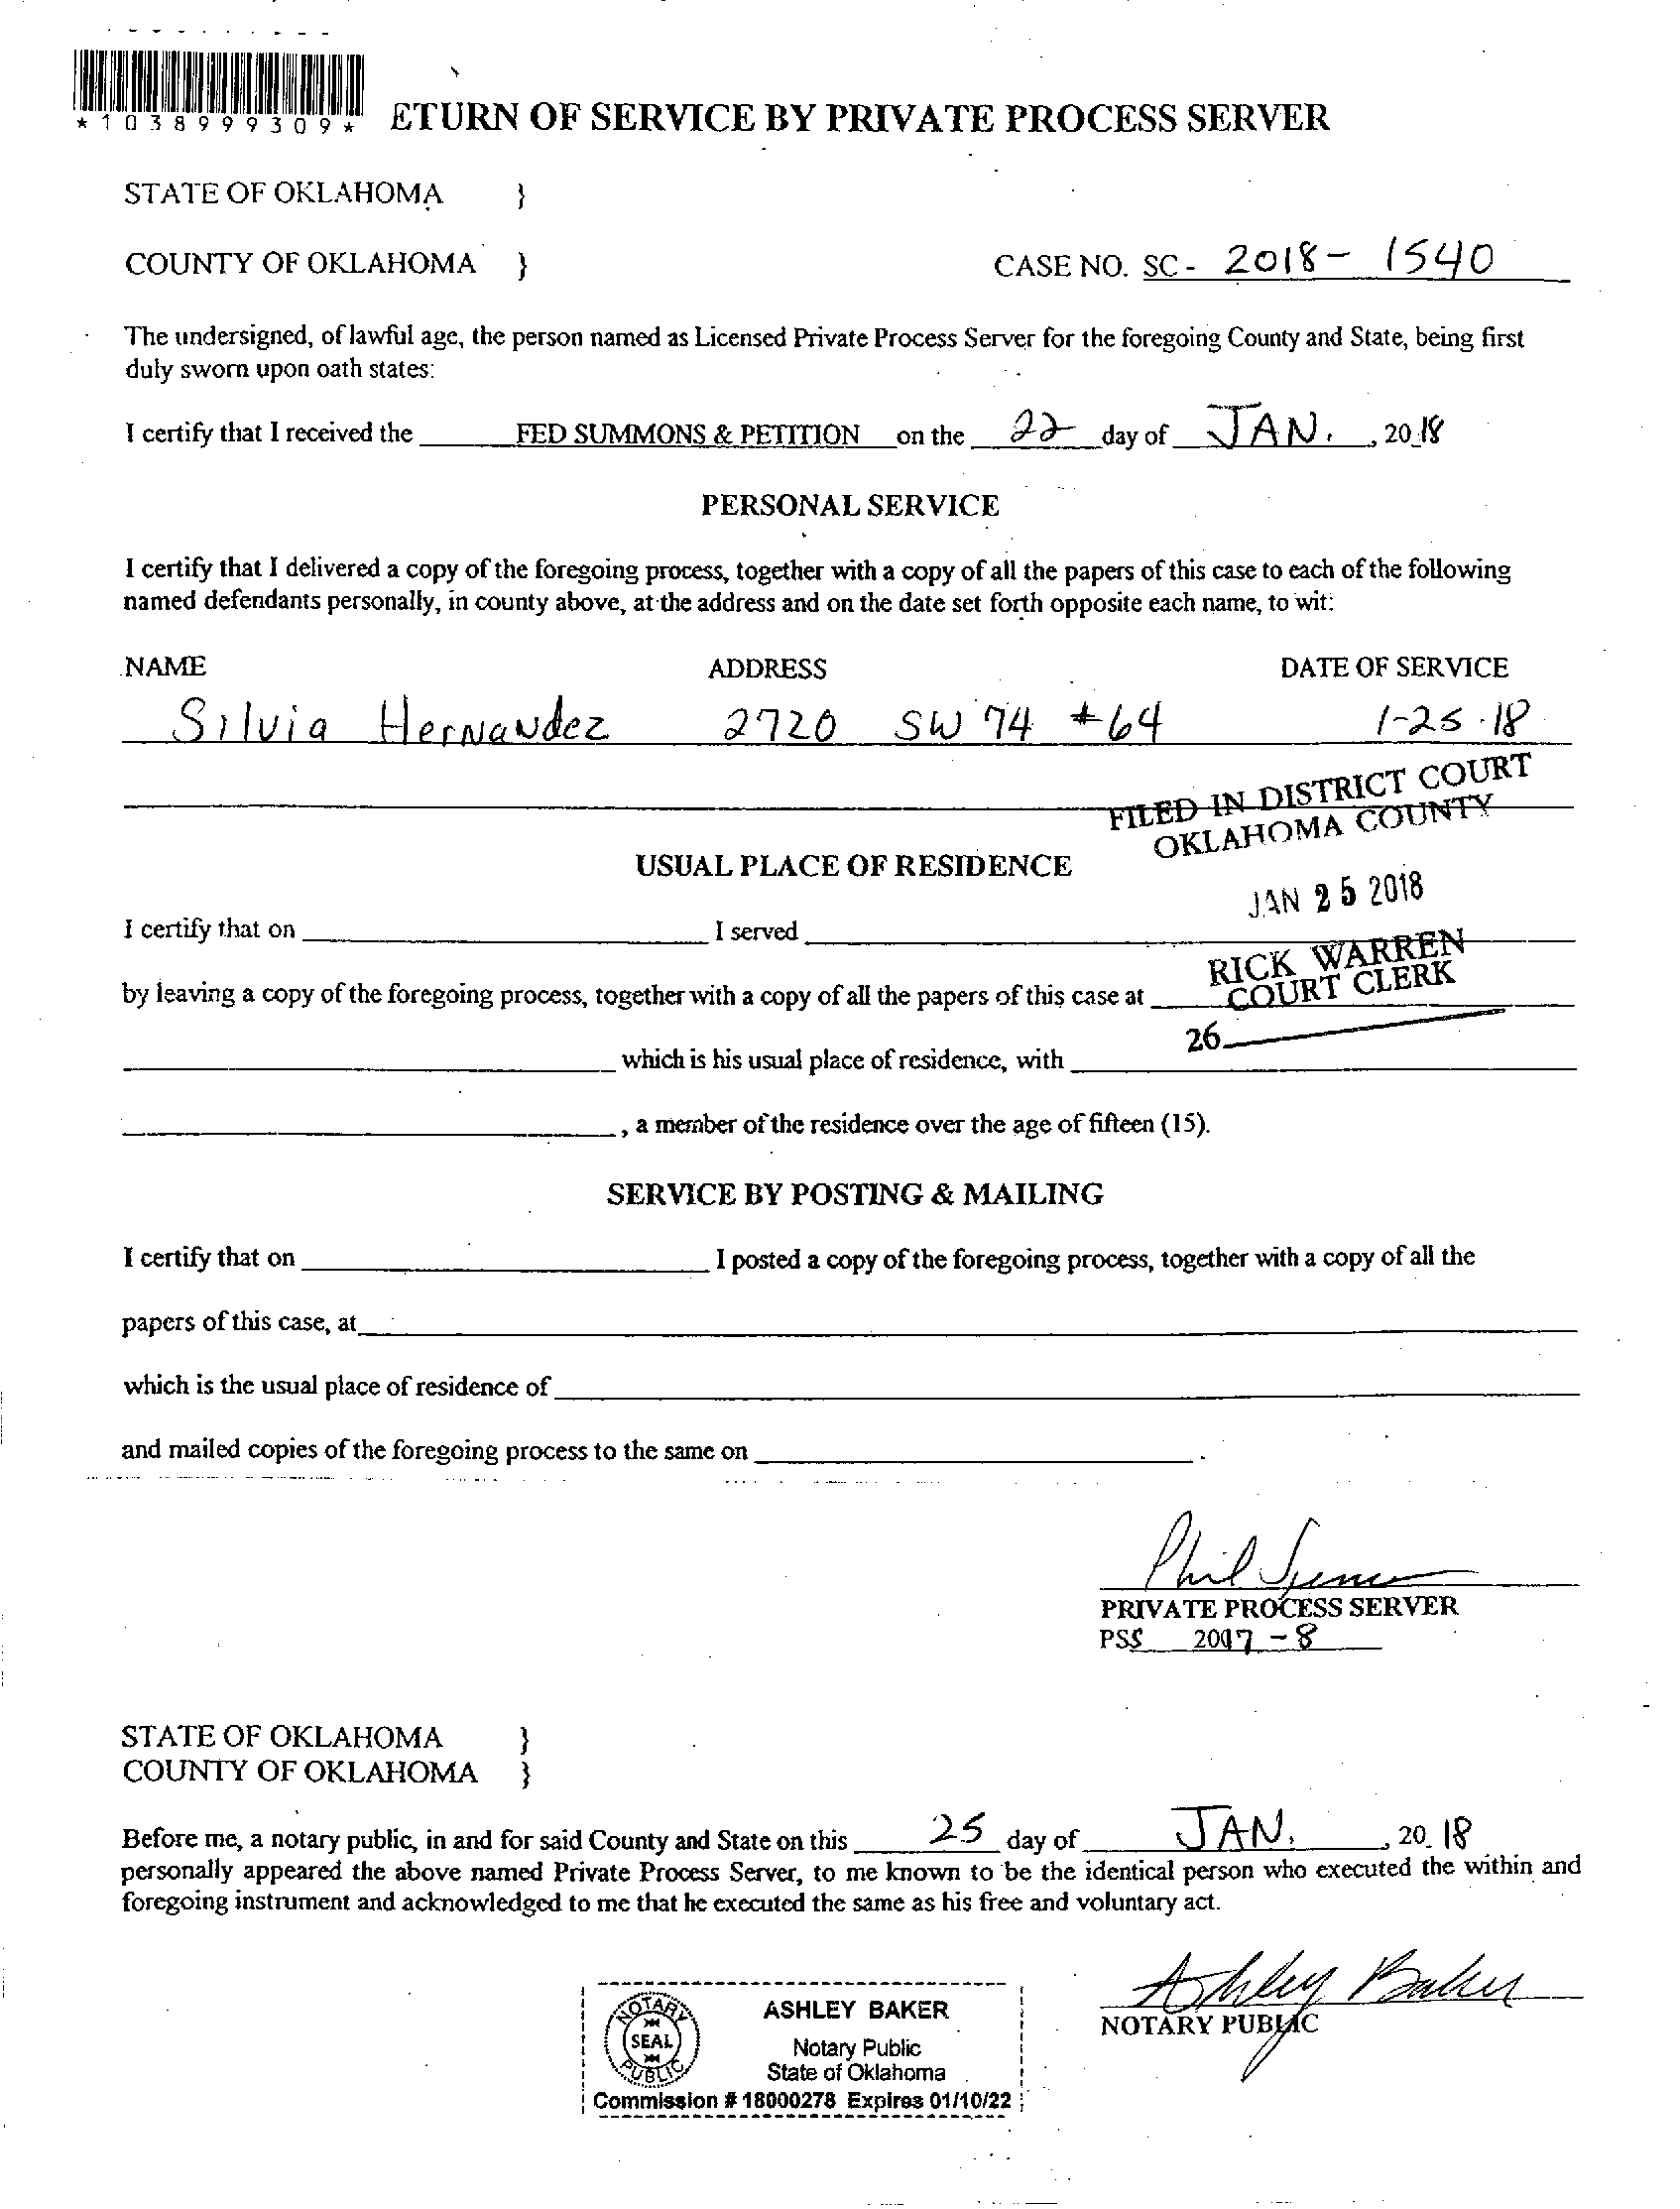 *1038999309* ETURN OF SERVICE BY PRIVATE PROCESS SERVER
STATE OF OKLAHOMA }
COUNTY OF OKLAHOMA } CASE NO. SC - 2018 - 1540
The undersigned, of lawful age, the person named as Licensed Private Process Server for the foregoing County and State, being first
duly sworn upon oath states:
I certify that I received the FED SUMMONS & PETITION on the 22 day of JAN. , 20 18
PERSONAL SERVICE
I certify that I delivered a copy of the foregoing process, together with a copy of all the papers of this case to each of the following
named defendants personally, in county above, at the address and on the date set forth opposite each name, to wit:
NAME ADDRESS DATE OF SERVICE
Silvia Hernandez 2720 SW 74 #64 1-25-18
FILED IN DISTRICT COURT
OKLAHOMA COUNTY
USUAL PLACE OF RESIDENCE
JAN 25 2018
I certify that on I served
RICK WARREN
COURT CLERK
by leaving a copy of the foregoing process, together with a copy of all the papers of this case at
26
which is his usual place of residence, with
, a member of the residence over the age of fifteen (15).
SERVICE BY POSTING & MAILING
I certify that on I posted a copy of the foregoing process, together with a copy of all the
papers of this case, at
which is the usual place of residence of
and mailed copies of the foregoing process to the same on .
Phil
PRIVATE PROCESS SERVER
PSS -8
STATE OF OKLAHOMA }
COUNTY OF OKLAHOMA }
Before me, a notary public, in and for said County and State on this 25 day of JAN. , 20 18
personally appeared the above named Private Process Server, to me known to be the identical person who executed the within and
foregoing instrument and acknowledged to me that he executed the same as his free and voluntary act.
Ashley Baker
NOTARY PUBLIC
NOTARY PUBLIC
SEAL
ASHLEY BAKER
Notary Public
State of Oklahoma
Commission # 18000278 Expires 01/10/22